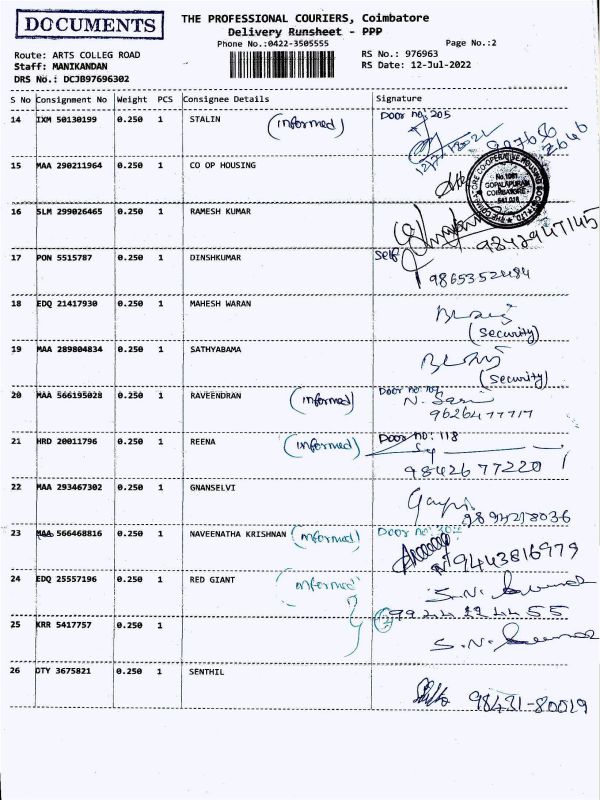 DOCUMENTS
THE PROFESSIONAL COURIERS, Coimbatore
Delivery Runsheet - PPP
Phone No.:0422-3505555
Page No.:2
Route: ARTS COLLEG ROAD
RS No.: 976963
Staff: MANIKANDAN
RS Date: 12-Jul-2022
DRS No.: DCJB97696302
S No Consignment No Weight PCS Consignee Details Signature
14 IXM 50130199 0.250 1 STALIN (informed) Door no: 205
15 MAA 290211964 0.250 1 CO OP HOUSING
No.1081
GOPALAPURAM
COIMBATORE
641 018
16 SLM 299026465 0.250 1 RAMESH KUMAR
9842947145
17 PON 5515787 0.250 1 DINSHKUMAR Self
9865352484
18 EDQ 21417930 0.250 1 MAHESH WARAN
(security)
19 MAA 289804834 0.250 1 SATHYABAMA
(security)
20 MAA 566195028 0.250 1 RAVEENDRAN (informed) Door no:
N. Sari
9626477717
21 HRD 20011796 0.250 1 REENA (informed) Door no: 118
9842677220
22 MAA 293467302 0.250 1 GNANSELVI
23 MAA 566468816 0.250 1 NAVEENATHA KRISHNAN (informed) Door no:
9443816979
24 EDQ 25557196 0.250 1 RED GIANT (informed)
S.N.
25 KRR 5417757 0.250 1
S.N.
26 DTY 3675821 0.250 1 SENTHIL
98431-80019